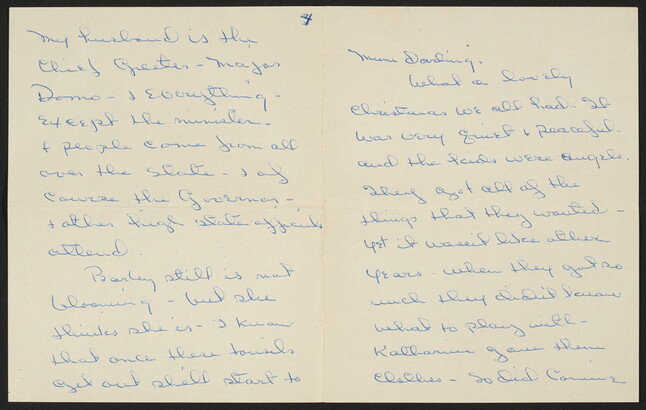 4
My husband is the
Chief Greeter - Major
Domo - & Everything -
Except the minister -
& people come from all
over the State - & of
course the Governor -
& other high state officials
attend.
Barley still is not
blooming - but she
thinks she is - I know
that once these tonsils
get out she'll start to
Mum Darling,
What a lovely
Christmas we all had. It
was very quiet & peaceful.
and the kids were angels.
They got all of the
things that they wanted -
yet it wasn't like other
years - when they got so
much they didn't know
what to play with -
Katharine gave them
clothes - so did Connie